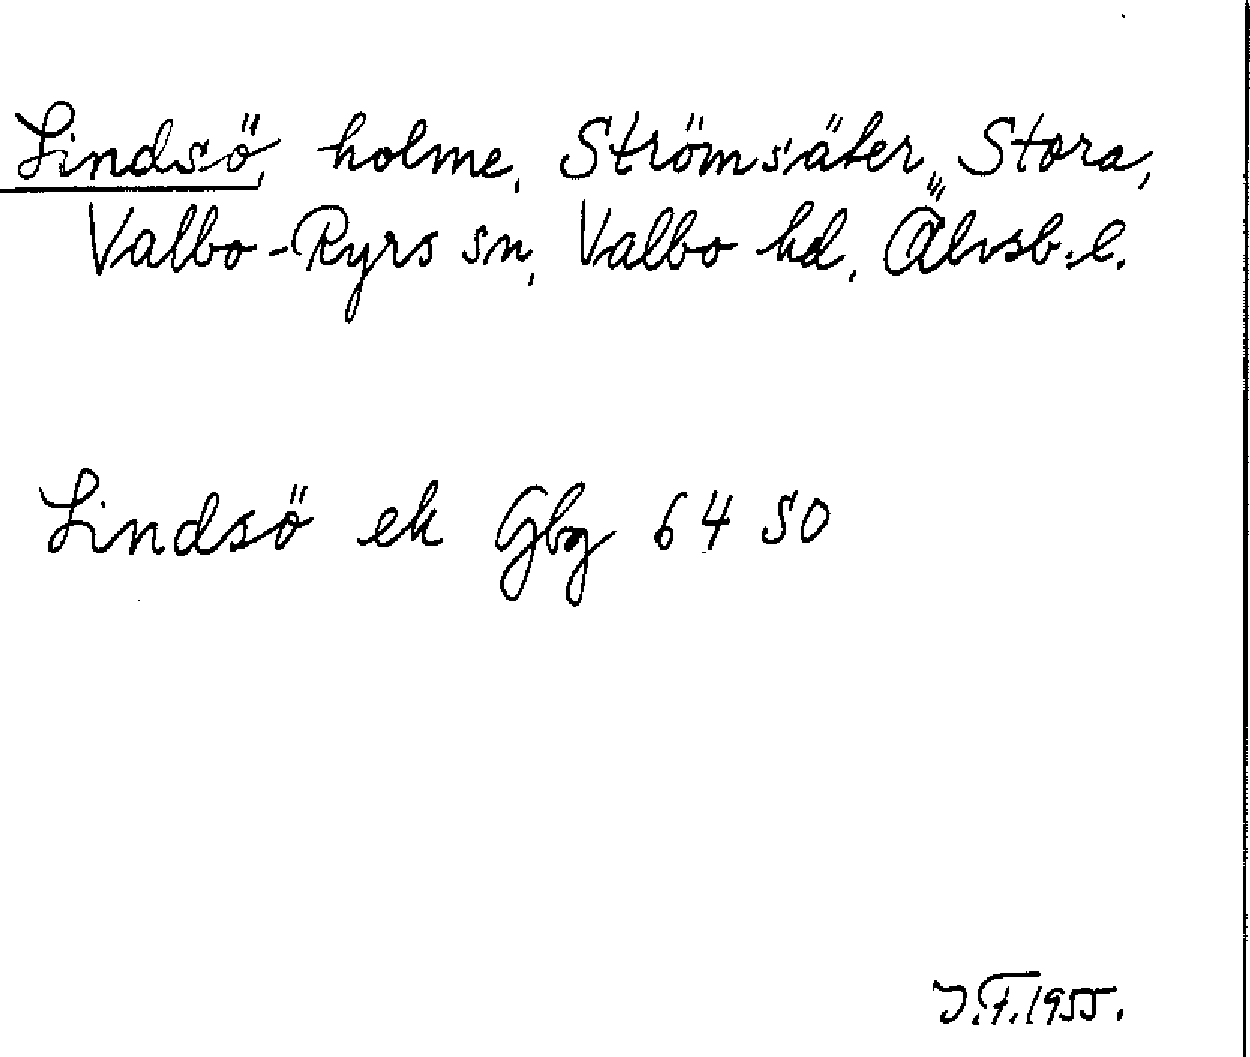 Lindsö, holme, Strömsäter, Stora,
Valbo-Ryrs sn, Valbo hd, Älvsb. l.
Lindsö ek Gbg 64 SO
J.F. 1955.